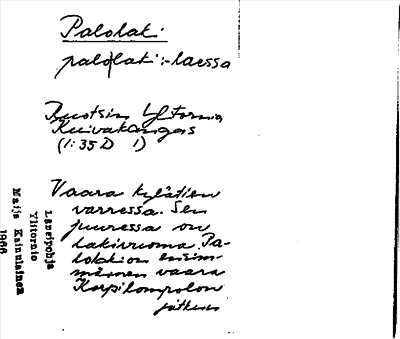 Palolaki
palolaki :-laessa
Ruotsin Ylitornio
Kuivakangas
(1:35 D 1)
Vaara kylätien
varressa. Sen
juuressa on
Lakivuoma. Pa-
lolaki on ensim-
mäinen vaara
Karpilompolon
jatkuu
Lansipohja
Ylitornio
Maija Kainulainen
1966